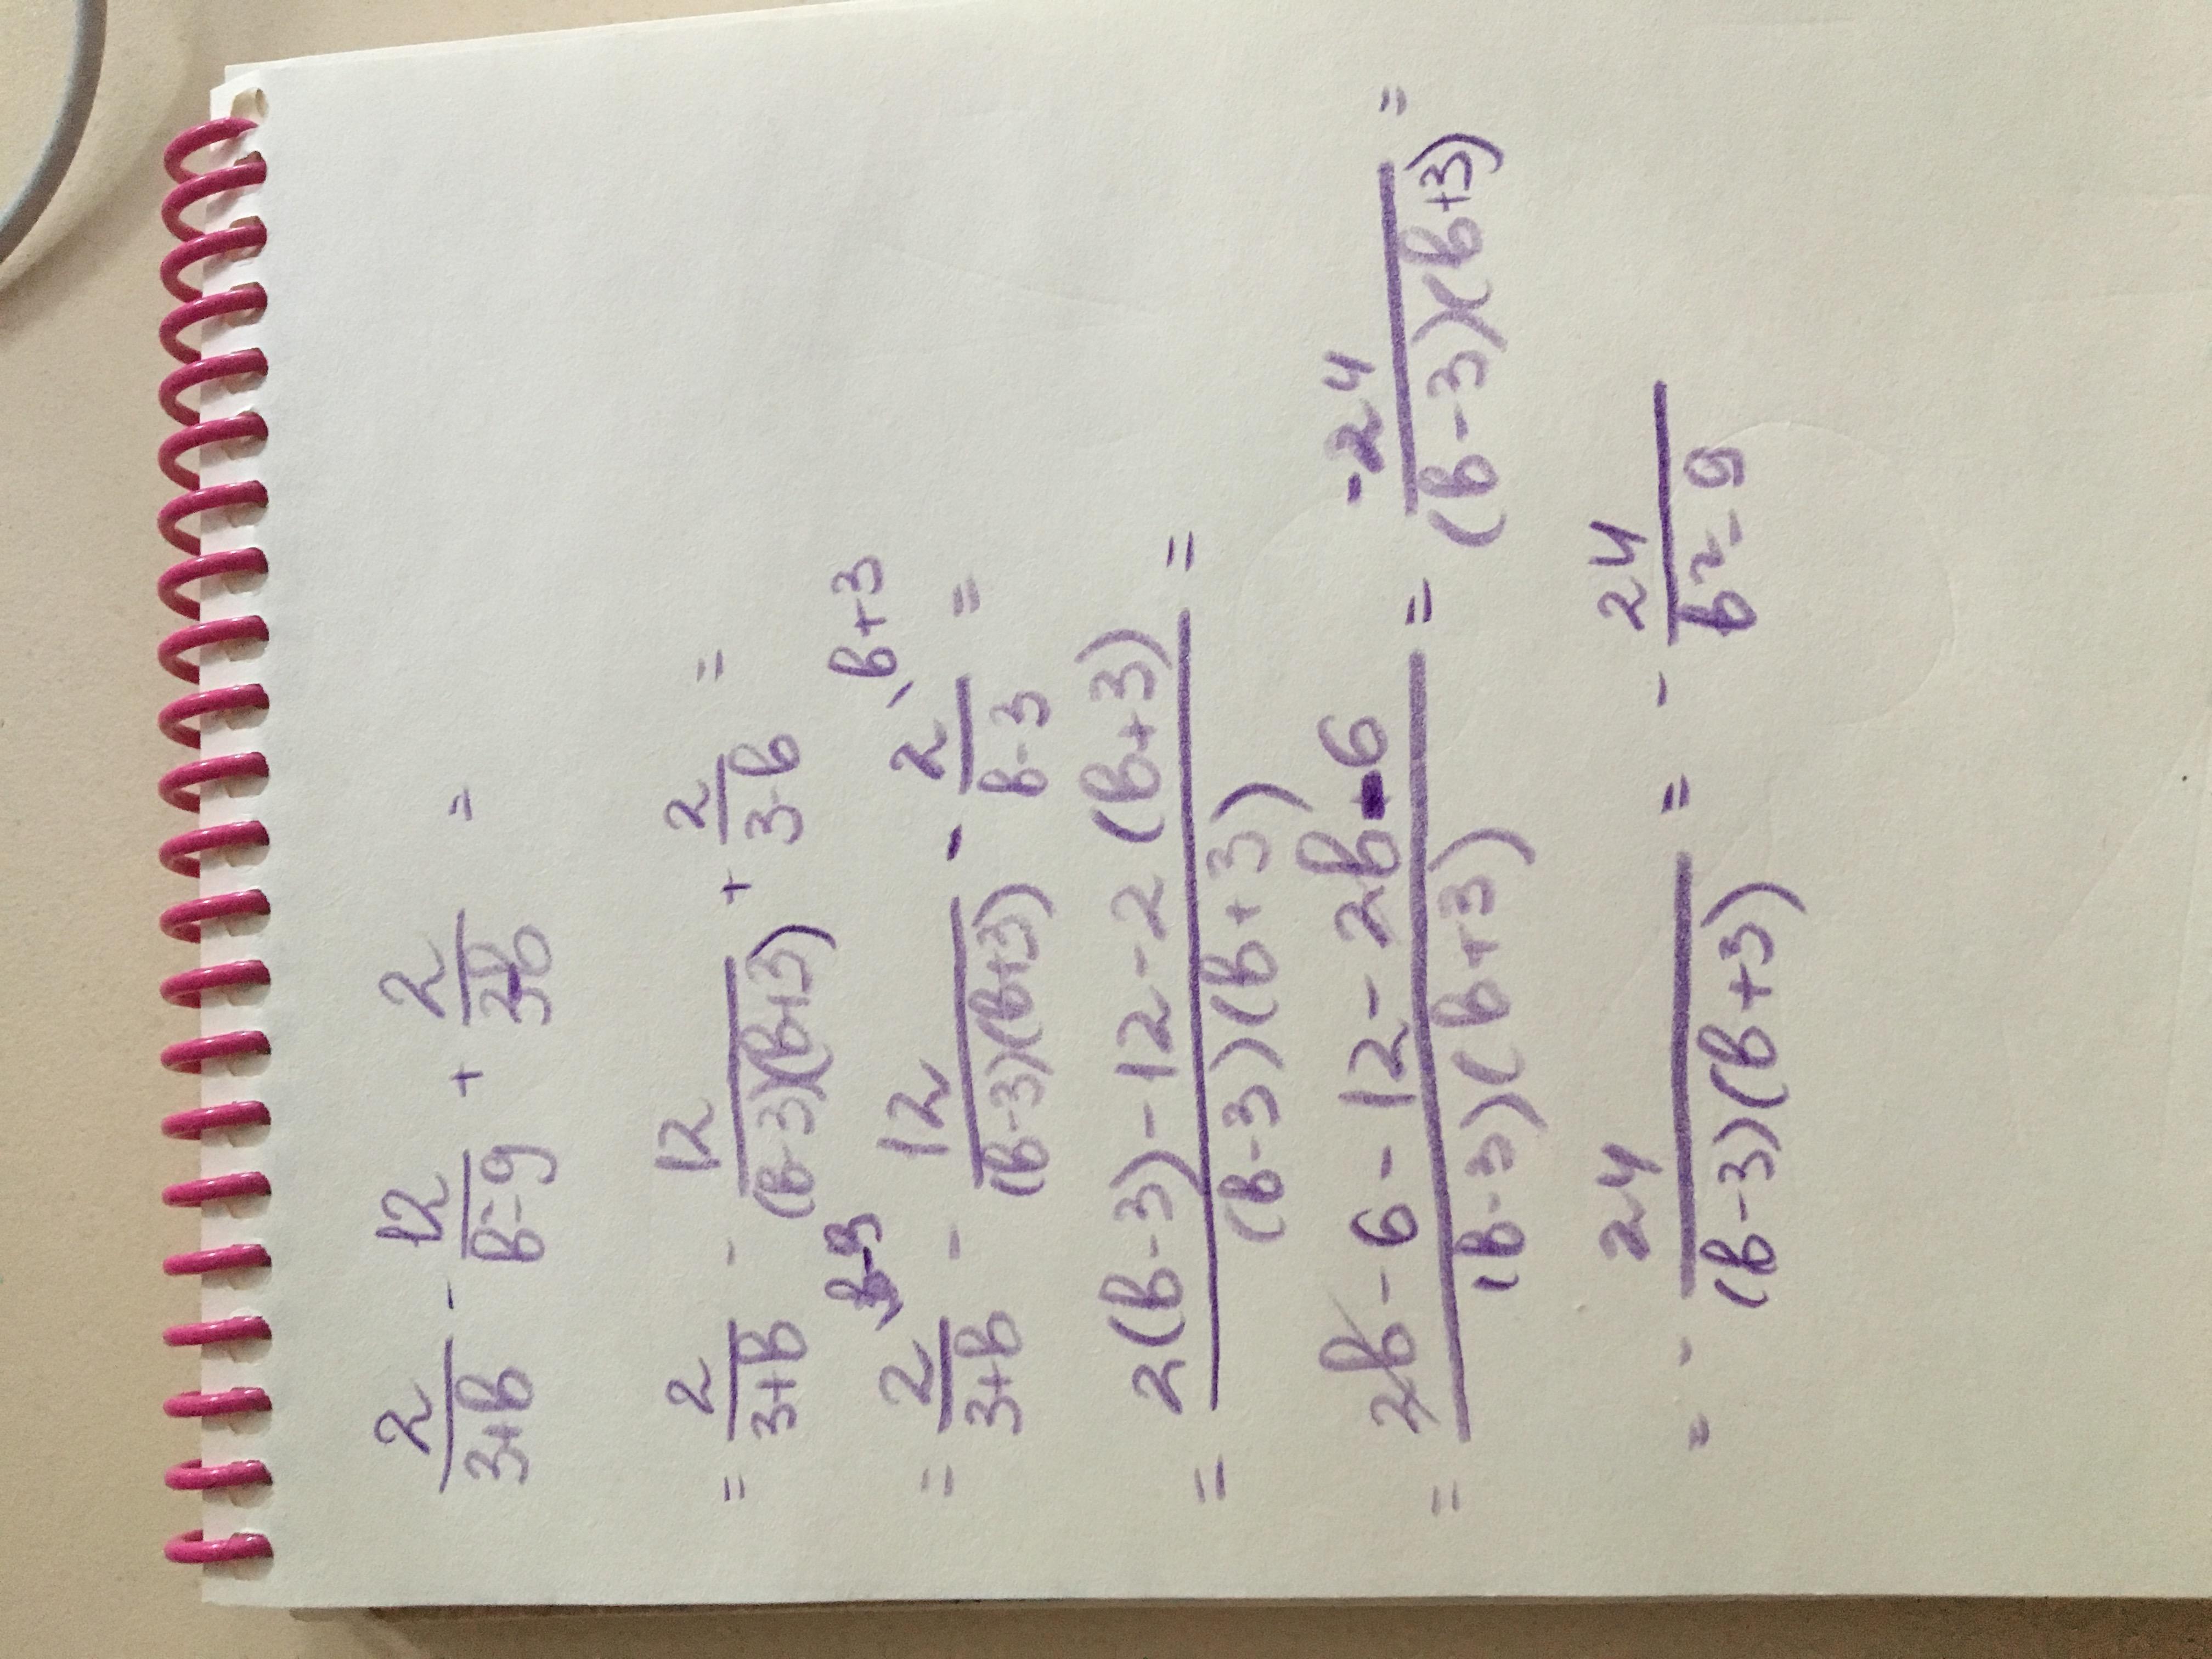 2/(3+b) - 12/(b²-9) + 2/(3-b) =
= 2/(3+b) - 12/((b-3)(b+3)) + 2/(3-b) =
= 2/(3+b) \b-3 - 12/((b-3)(b+3)) - 2/(b-3) \b+3 =
= (2(b-3)-12-2(b+3))/((b-3)(b+3)) =
= (2b-6-12-2b-6)/((b-3)(b+3)) = -24/((b-3)(b+3)) =
= - 24/((b-3)(b+3)) = - 24/(b²-9)